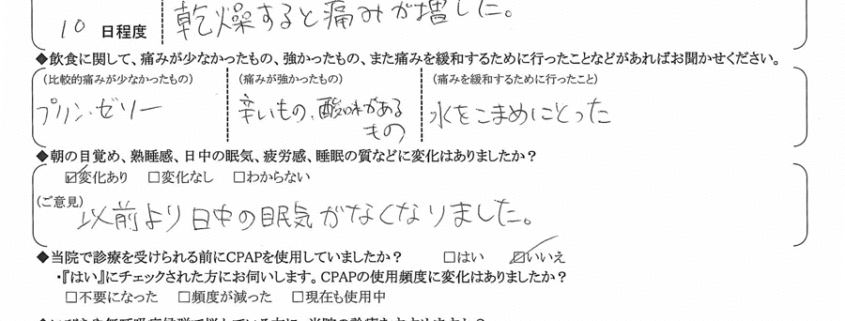 10 日程度
乾燥すると痛みが増した。
◆飲食に関して、痛みが少なかったもの、強かったもの、また痛みを緩和するために行ったことなどがあればお聞かせください。
(比較的痛みが少なかったもの)
プリン・ゼリー
(痛みが強かったもの)
辛いもの、酸味がある
もの
(痛みを緩和するために行ったこと)
水をこまめにとった
◆朝の目覚め、熟睡感、日中の眠気、疲労感、睡眠の質などに変化はありましたか?
☑変化あり □変化なし □わからない
(ご意見)
以前より日中の眠気がなくなりました。
◆当院で診療を受けられる前にCPAPを使用していましたか? □はい ☑いいえ
・『はい』にチェックされた方にお伺いします。CPAPの使用頻度に変化はありましたか?
□不要になった □頻度が減った □現在も使用中